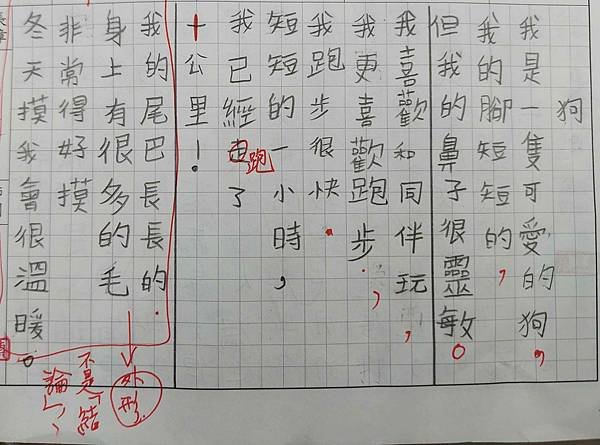 狗
我是一隻可愛的狗,
我的腳短短的,
但我的鼻子很靈敏。
我喜歡和同伴玩,
我更喜歡跑步,
我跑步很快。
短短的一小時,
我已經跑了
十公里!
我的尾巴長長的.
身上有很多的毛
非常得好摸
冬天摸我會很溫暖。
外形.
不是「結
論」,